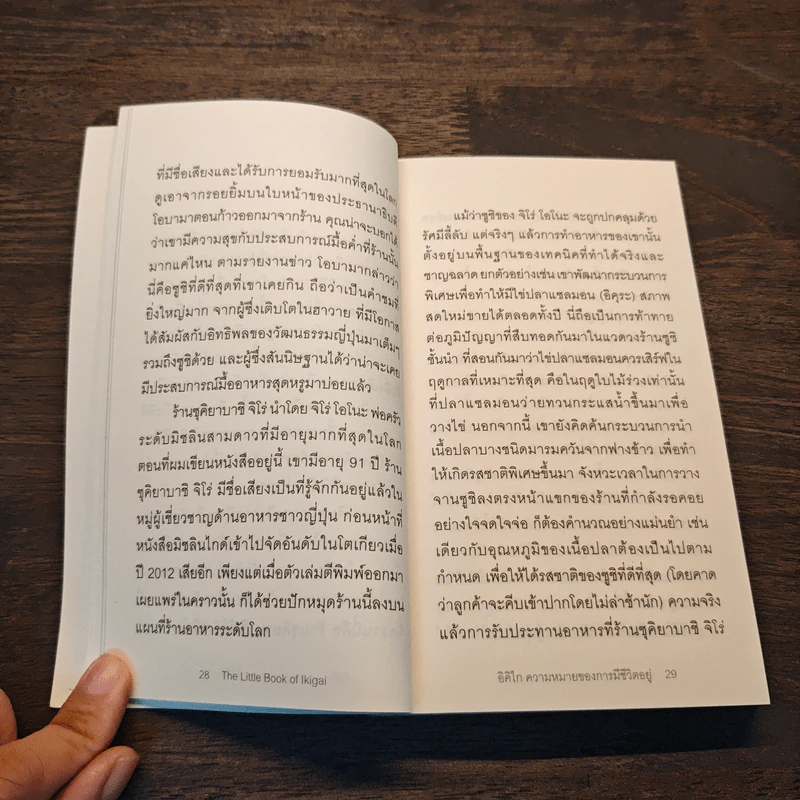 ที่มีชื่อเสียงและได้รับการยอมรับมากที่สุดในโลก
ดูเอาจากรอยยิ้มบนใบหน้าของประธานาธิบดี
โอบามาตอนก้าวออกมาจากร้าน คุณน่าจะบอกได้
ว่าเขามีความสุขกับประสบการณ์มื้อค่ำที่ร้านนั้น
มากแค่ไหน ตามรายงานข่าว โอบามากล่าวว่า
นี่คือซูชิที่ดีที่สุดที่เขาเคยกิน ถือว่าเป็นคำชมที่
ยิ่งใหญ่มาก จากผู้ซึ่งเติบโตในฮาวาย ที่มีโอกาส
ได้สัมผัสกับอิทธิพลของวัฒนธรรมญี่ปุ่นมาเต็มๆ
รวมถึงซูชิด้วย และผู้ซึ่งสันนิษฐานได้ว่าน่าจะเคย
มีประสบการณ์มื้ออาหารสุดหรูมาบ่อยแล้ว
ร้านซุคิยาบาชิ จิโร่ นำโดย จิโร่ โอโนะ พ่อครัว
ระดับมิชลินสามดาวที่มีอายุมากที่สุดในโลก
ตอนที่ผมเขียนหนังสืออยู่นี้ เขามีอายุ 91 ปี ร้าน
ซุคิยาบาชิ จิโร่ มีชื่อเสียงเป็นที่รู้จักกันอยู่แล้วใน
หมู่ผู้เชี่ยวชาญด้านอาหารชาวญี่ปุ่น ก่อนหน้าที่
หนังสือมิชลินไกด์เข้าไปจัดอันดับในโตเกียวเมื่อ
ปี 2012 เสียอีก เพียงแต่เมื่อตัวเล่มตีพิมพ์ออกมา
เผยแพร่ในคราวนั้น ก็ได้ช่วยปักหมุดร้านนี้ลงบน
แผนที่ร้านอาหารระดับโลก
28 The Little Book of Ikigai
แม้ว่าซูชิของ จิโร่ โอโนะ จะถูกปกคลุมด้วย
รัศมีลี้ลับ แต่จริงๆ แล้วการทำอาหารของเขานั้น
ตั้งอยู่บนพื้นฐานของเทคนิคที่ทำได้จริงและ
ชาญฉลาด ยกตัวอย่างเช่น เขาพัฒนากระบวนการ
พิเศษเพื่อทำให้มีไข่ปลาแซลมอน (อิคุระ) สภาพ
สดใหม่ขายได้ตลอดทั้งปี นี่ถือเป็นการท้าทาย
ต่อภูมิปัญญาที่สืบทอดกันมาในแวดวงร้านซูชิ
ชั้นนำ ที่สอนกันมาว่าไข่ปลาแซลมอนควรเสิร์ฟใน
ฤดูกาลที่เหมาะที่สุด คือในฤดูใบไม้ร่วงเท่านั้น
ที่ปลาแซลมอนว่ายทวนกระแสน้ำขึ้นมาเพื่อ
วางไข่ นอกจากนี้ เขายังคิดค้นกระบวนการนำ
เนื้อปลาบางชนิดมารมควันจากฟางข้าว เพื่อทำ
ให้เกิดรสชาติพิเศษขึ้นมา จังหวะเวลาในการวาง
จานซูชิลงตรงหน้าแขกของร้านที่กำลังรอคอย
อย่างใจจดใจจ่อ ก็ต้องคำนวณอย่างแม่นยำ เช่น
เดียวกับอุณหภูมิของเนื้อปลาต้องเป็นไปตาม
กำหนด เพื่อให้ได้รสชาติของซูชิที่ดีที่สุด (โดยคาด
ว่าลูกค้าจะคีบเข้าปากโดยไม่ล่าช้านัก) ความจริง
แล้วการรับประทานอาหารที่ร้านซุคิยาบาชิ จิโร่
อิคิไก ความหมายของการมีชีวิตอยู่ 29